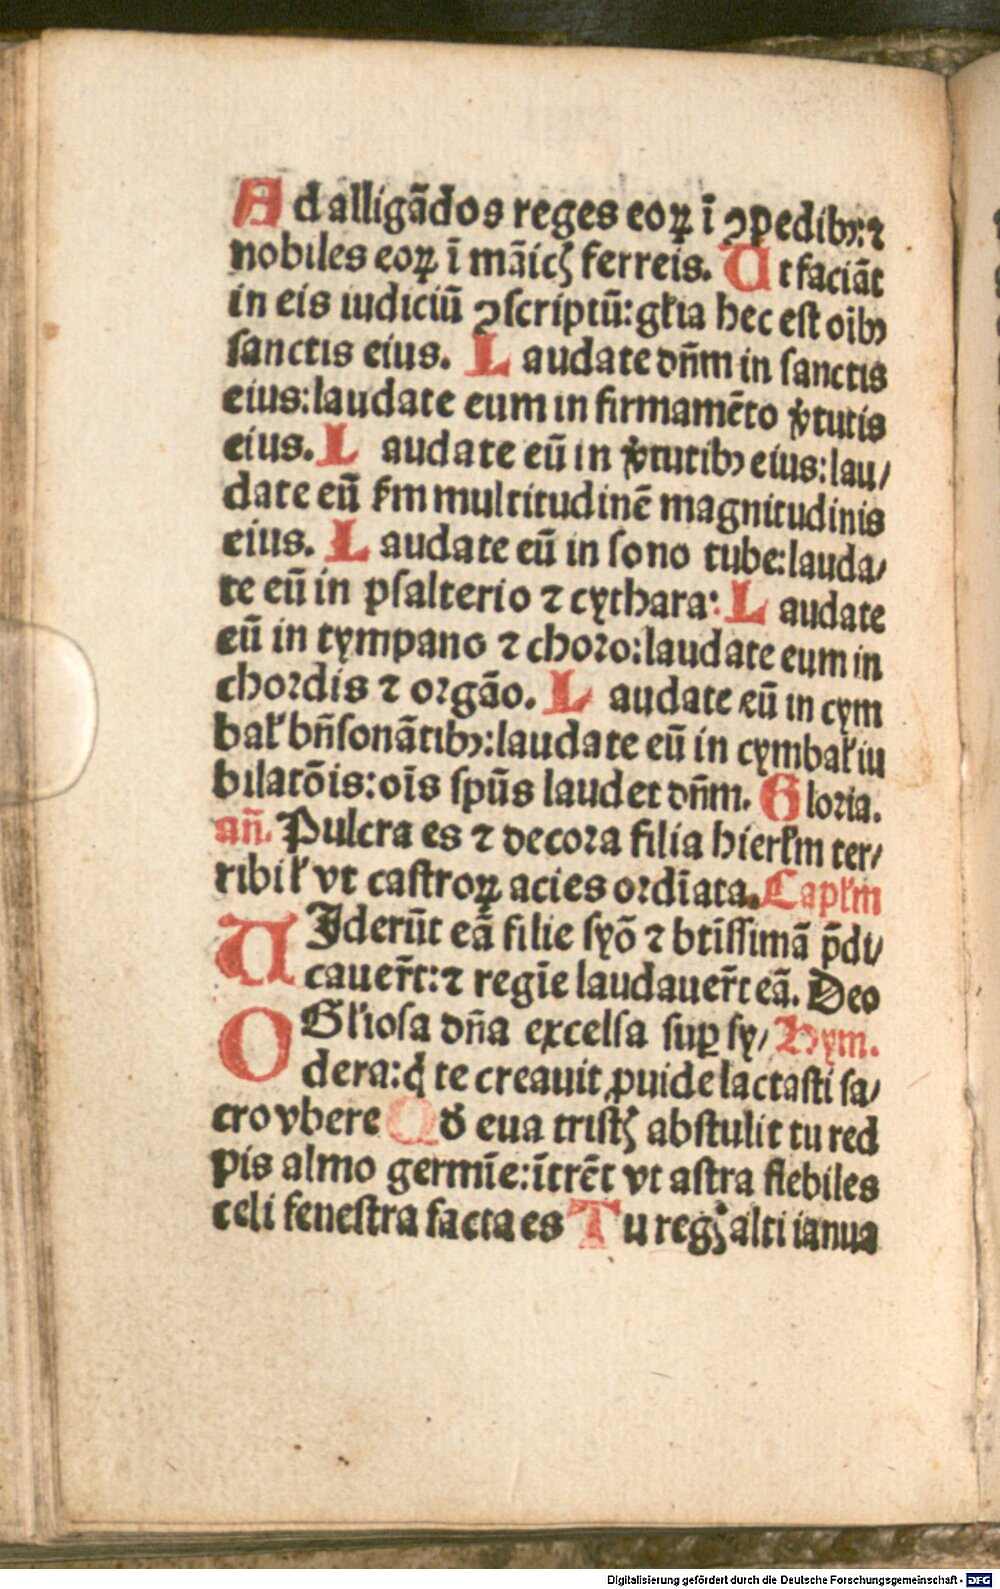 Ad alligādos reges eoꝝ ī ꝯpedibꝰ: ⁊
nobiles eoꝝ ī māicꝫ ferreis. Ut faciāt
in eis iudiciū ꝯscriptū: gl̓ia hec est oībꝰ
sanctis eius. Laudate dn̄m in sanctis
eius: laudate eum in firmamēto v̓tutis
eius. Laudate eū in v̓tutibꝰ eius: lau/
date eū ẜm multitudinē magnitudinis
eius. Laudate eū in sono tube: lauda/
te eū in psalterio ⁊ cythara: Laudate
eū in tympano ⁊ choro: laudate eum in
chordis ⁊ orgāo. Laudate eū in cym
bal̓ bn̄sonātibꝰ: laudate eū in cymbal̓ iu
bilatōis: oīs spūs laudet dn̄m. Gloria.
an̄. Pulcra es ⁊ decora filia hierl̓m ter/
ribil̓ vt castroꝝ acies ordīata. Capl̓m
UIderūt eā filie syō ⁊ btīssimā p̄di/
cauer̄t: ⁊ regīe laudauer̄t eā. Deo
O Gl̓iosa dn̄a excelsa suꝑ sy/ Hym.
dera: q̓ te creauit ꝓuide lactasti sa/
cro vbere Qd̓ eua tristꝫ abstulit tu red
pis almo germīe: ītrēt vt astra flebiles
celi fenestra facta es Tu regꝫ alti ianua
Digitalisierung gefördert durch die Deutsche Forschungsgemeinschaft - DFG